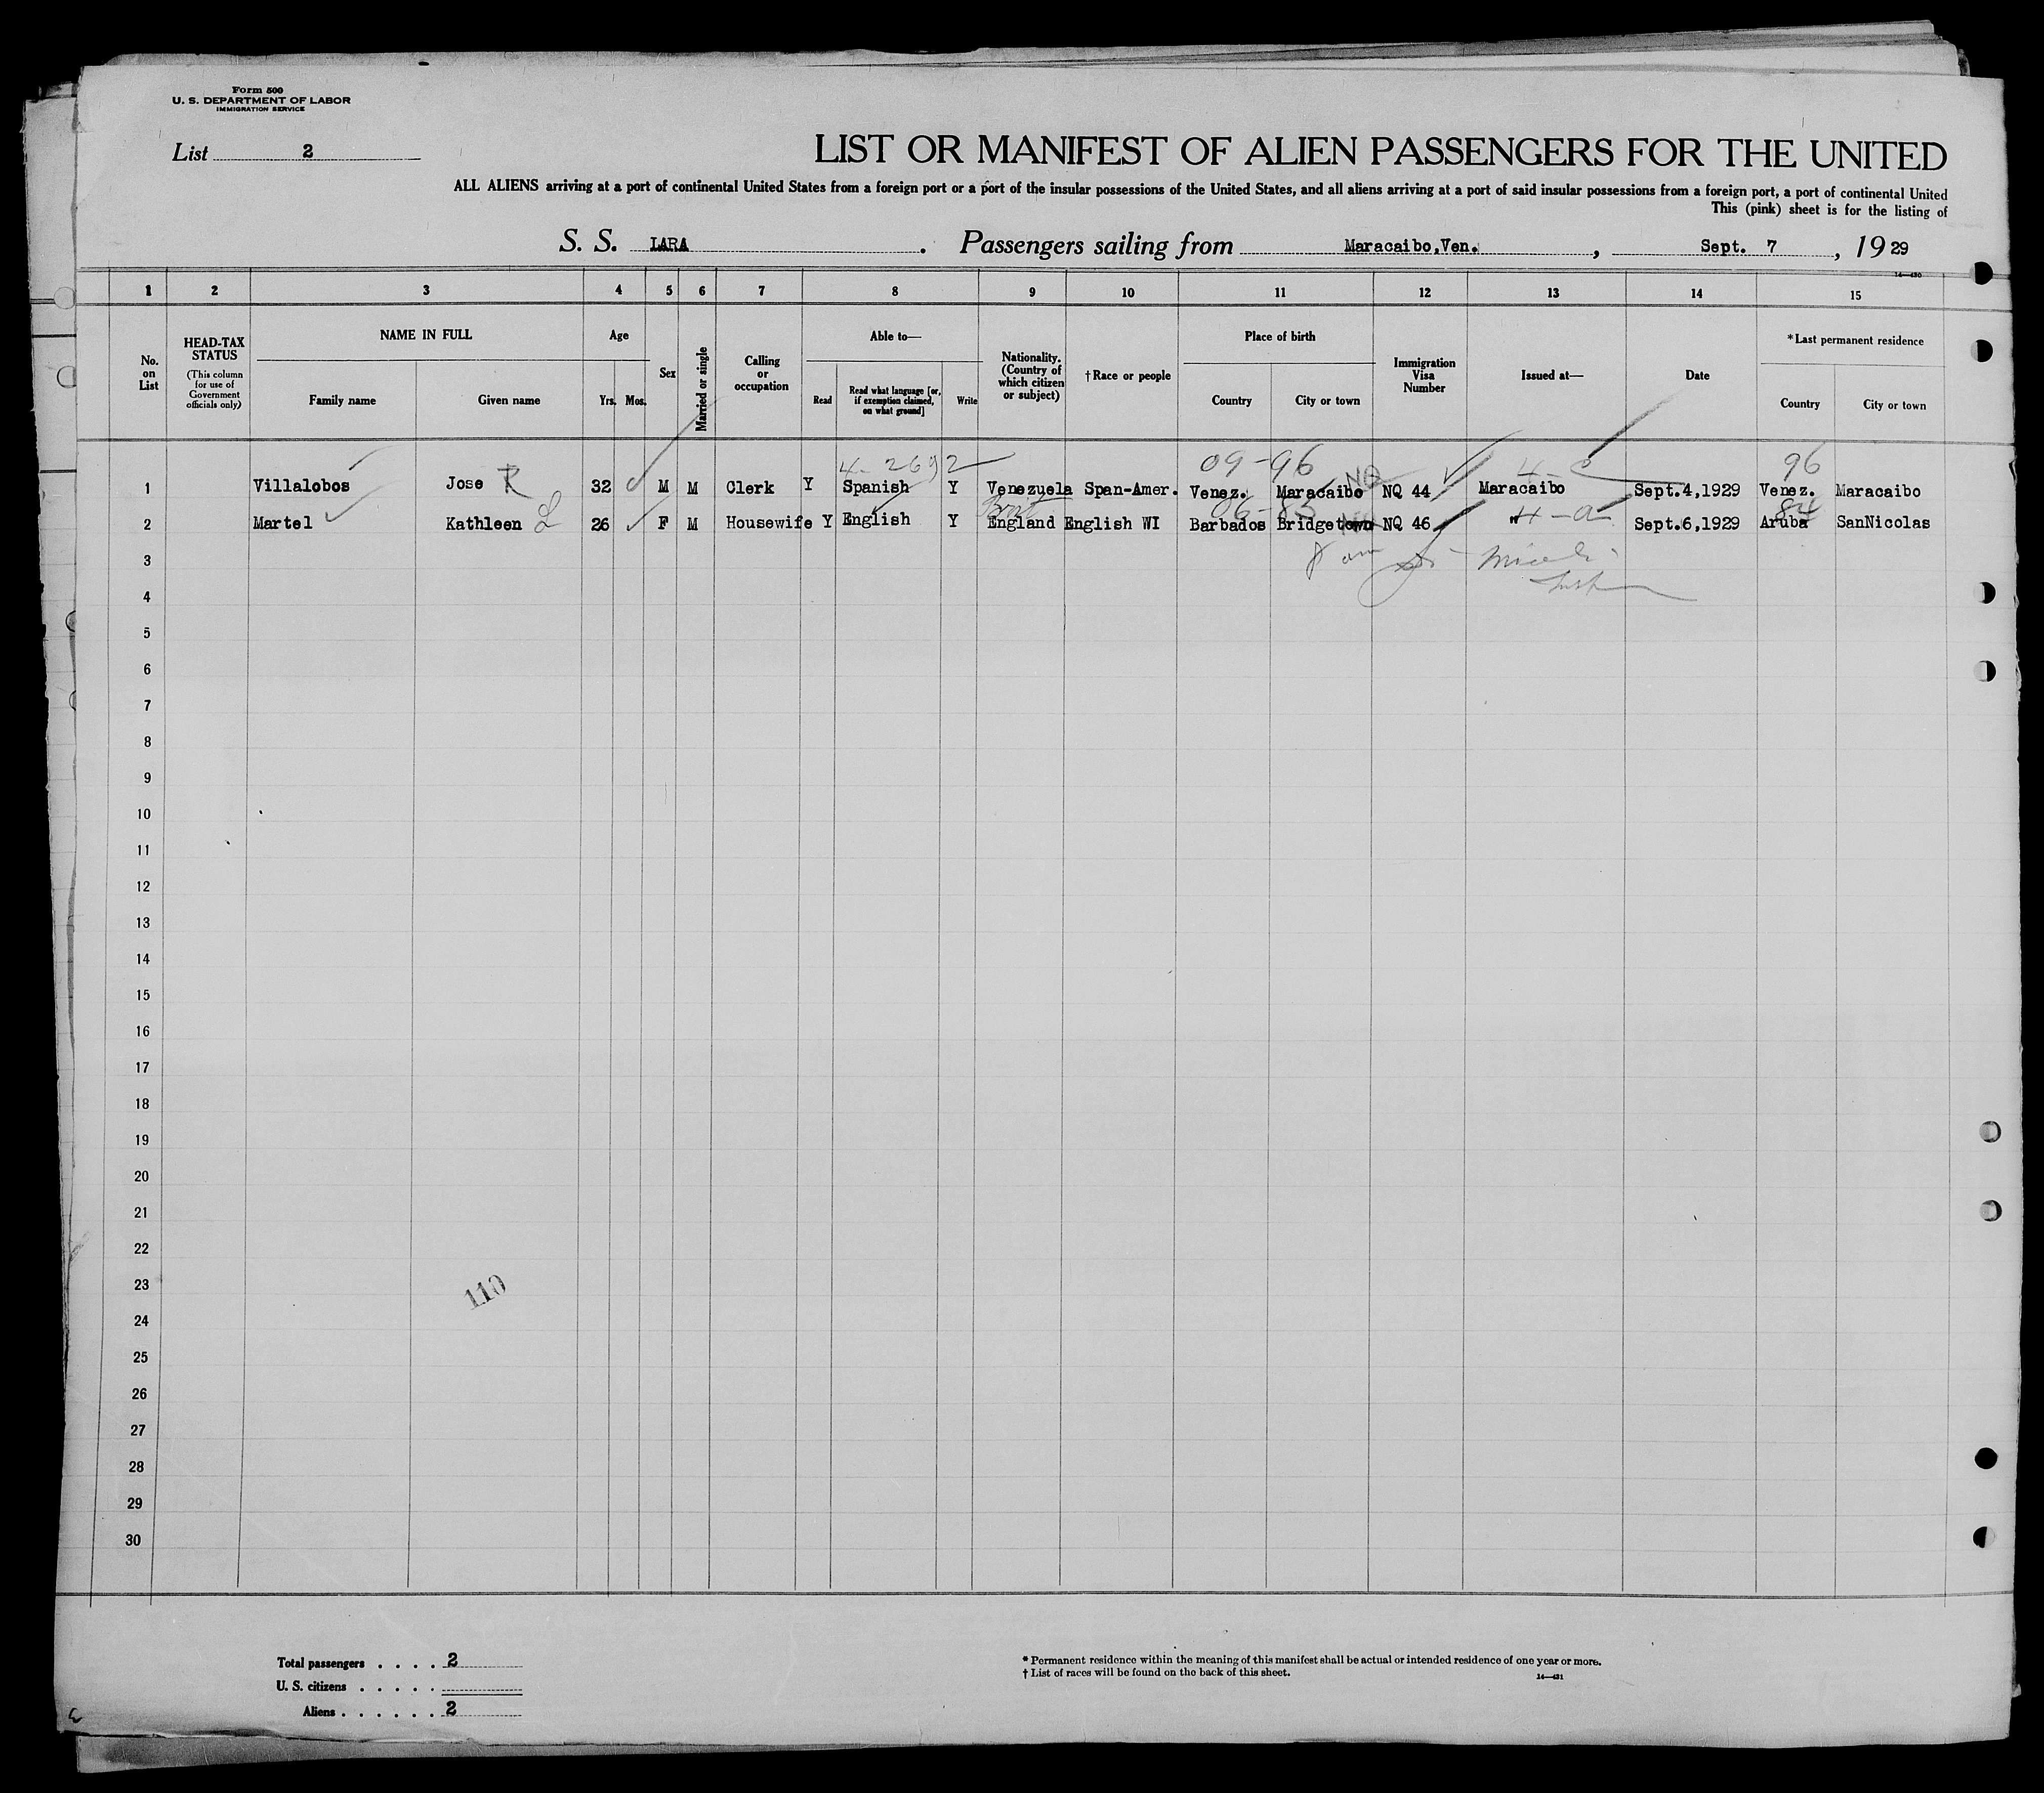 Form 500
U. S. DEPARTMENT OF LABOR
IMMIGRATION SERVICE
List 2
LIST OR MANIFEST OF ALIEN PASSENGERS FOR THE UNITED
ALL ALIENS arriving at a port of continental United States from a foreign port or a port of the insular possessions of the United States, and all aliens arriving at a port of said insular possessions from a foreign port, a port of continental United
This (pink) sheet is for the listing of
S. S. LARA. Passengers sailing from Maracaibo,Ven., Sept. 7, 1929
14-430
1 2 3 4 5 6 7 8 9 10 11 12 13 14 15
No. on List
HEAD-TAX STATUS
(This column for use of Government officials only)
NAME IN FULL
Family name
Given name
Age
Yrs. Mos.
Sex
Married or single
Calling or occupation
Able to—
Read
Read what language [or, if exemption claimed, on what ground]
Write
Nationality. (Country of which citizen or subject)
†Race or people
Place of birth
Country
City or town
Immigration Visa Number
Issued at—
Date
*Last permanent residence
Country
City or town
4-2692 09-96 NQ 4-C 96
1 Villalobos Jose R 32 M M Clerk Y Spanish Y Venezuela Span-Amer. Venez. Maracaibo NQ 44 Maracaibo Sept.4,1929 Venez. Maracaibo
Brit 06-83 84
2 Martel Kathleen L 26 F M Housewife Y English Y England English WI Barbados Bridgetown NQ 46 " 4-a Sept.6,1929 Aruba SanNicolas
3
4
5
6
7
8
9
10
11
12
13
14
15
16
17
18
19
20
21
22
23
110
24
25
26
27
28
29
30
Total passengers . . . . 2
U. S. citizens . . . . .
Aliens . . . . . . 2
* Permanent residence within the meaning of this manifest shall be actual or intended residence of one year or more.
† List of races will be found on the back of this sheet.
14-431